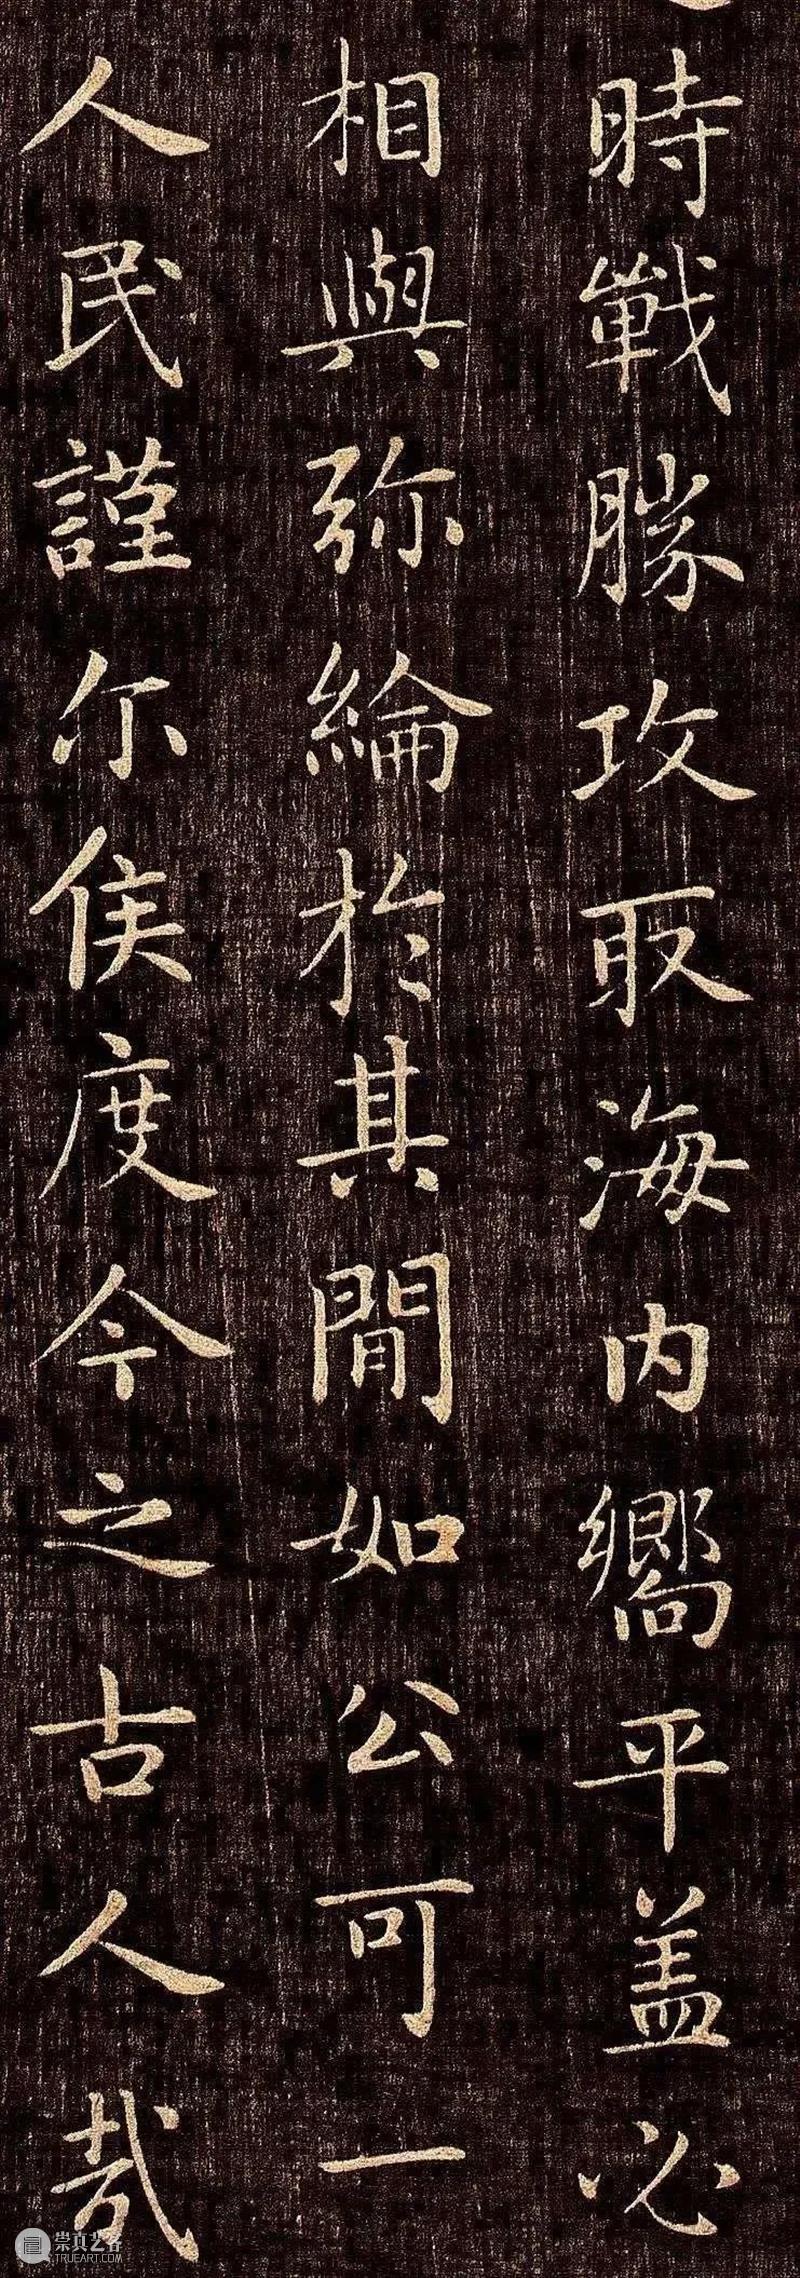 時戰勝攻取海内嚮平盖必
相與弥綸於其間如公可一
人民謹尔侯度今之古人㢤
崇真艺客
TRUEART.COM